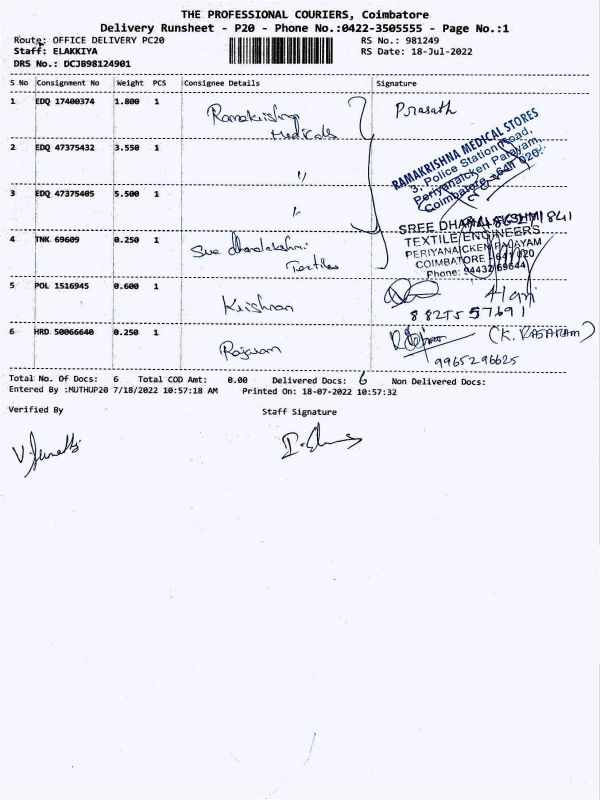 THE PROFESSIONAL COURIERS, Coimbatore
Delivery Runsheet - P20 - Phone No.:0422-3505555 - Page No.:1
Route: OFFICE DELIVERY PC20 RS No.: 981249
Staff: ELAKKIYA RS Date: 18-Jul-2022
DRS No.: DCJB98124901
S No Consignment No Weight PCS Consignee Details Signature
1 EDQ 17400374 1.800 1 Ramakrishna Medicals Prasath
2 EDQ 47375432 3.550 1 "
RAMAKRISHNA MEDICAL STORES
3, Police Station Road,
Periyanaicken Palayam,
Coimbatore - 641 020.
3 EDQ 47375405 5.500 1 "
SREE DHANALEKSHMI
TEXTILE ENGINEERS
PERIYANAICKEN PALAYAM
COIMBATORE - 641 020
Phone: 94432 69644
4 TNK 69609 0.250 1 Sree dhanalekshmi Textiles
5 POL 1516945 0.600 1 Krishnan Hari
88255 57691
6 HRD 50066640 0.250 1 Rajaram (K. RAJARAM)
9965296625
Total No. Of Docs: 6 Total COD Amt: 0.00 Delivered Docs: 6 Non Delivered Docs:
Entered By :MUTHUP20 7/18/2022 10:57:18 AM Printed On: 18-07-2022 10:57:32
Verified By Staff Signature